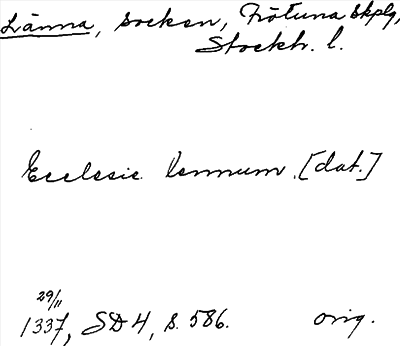 Länna, socken, Frötuna skplg,
Stockh. l.
Ecclesie lennum. [dat.]
29/11
1337, SD 4, s. 586. orig.